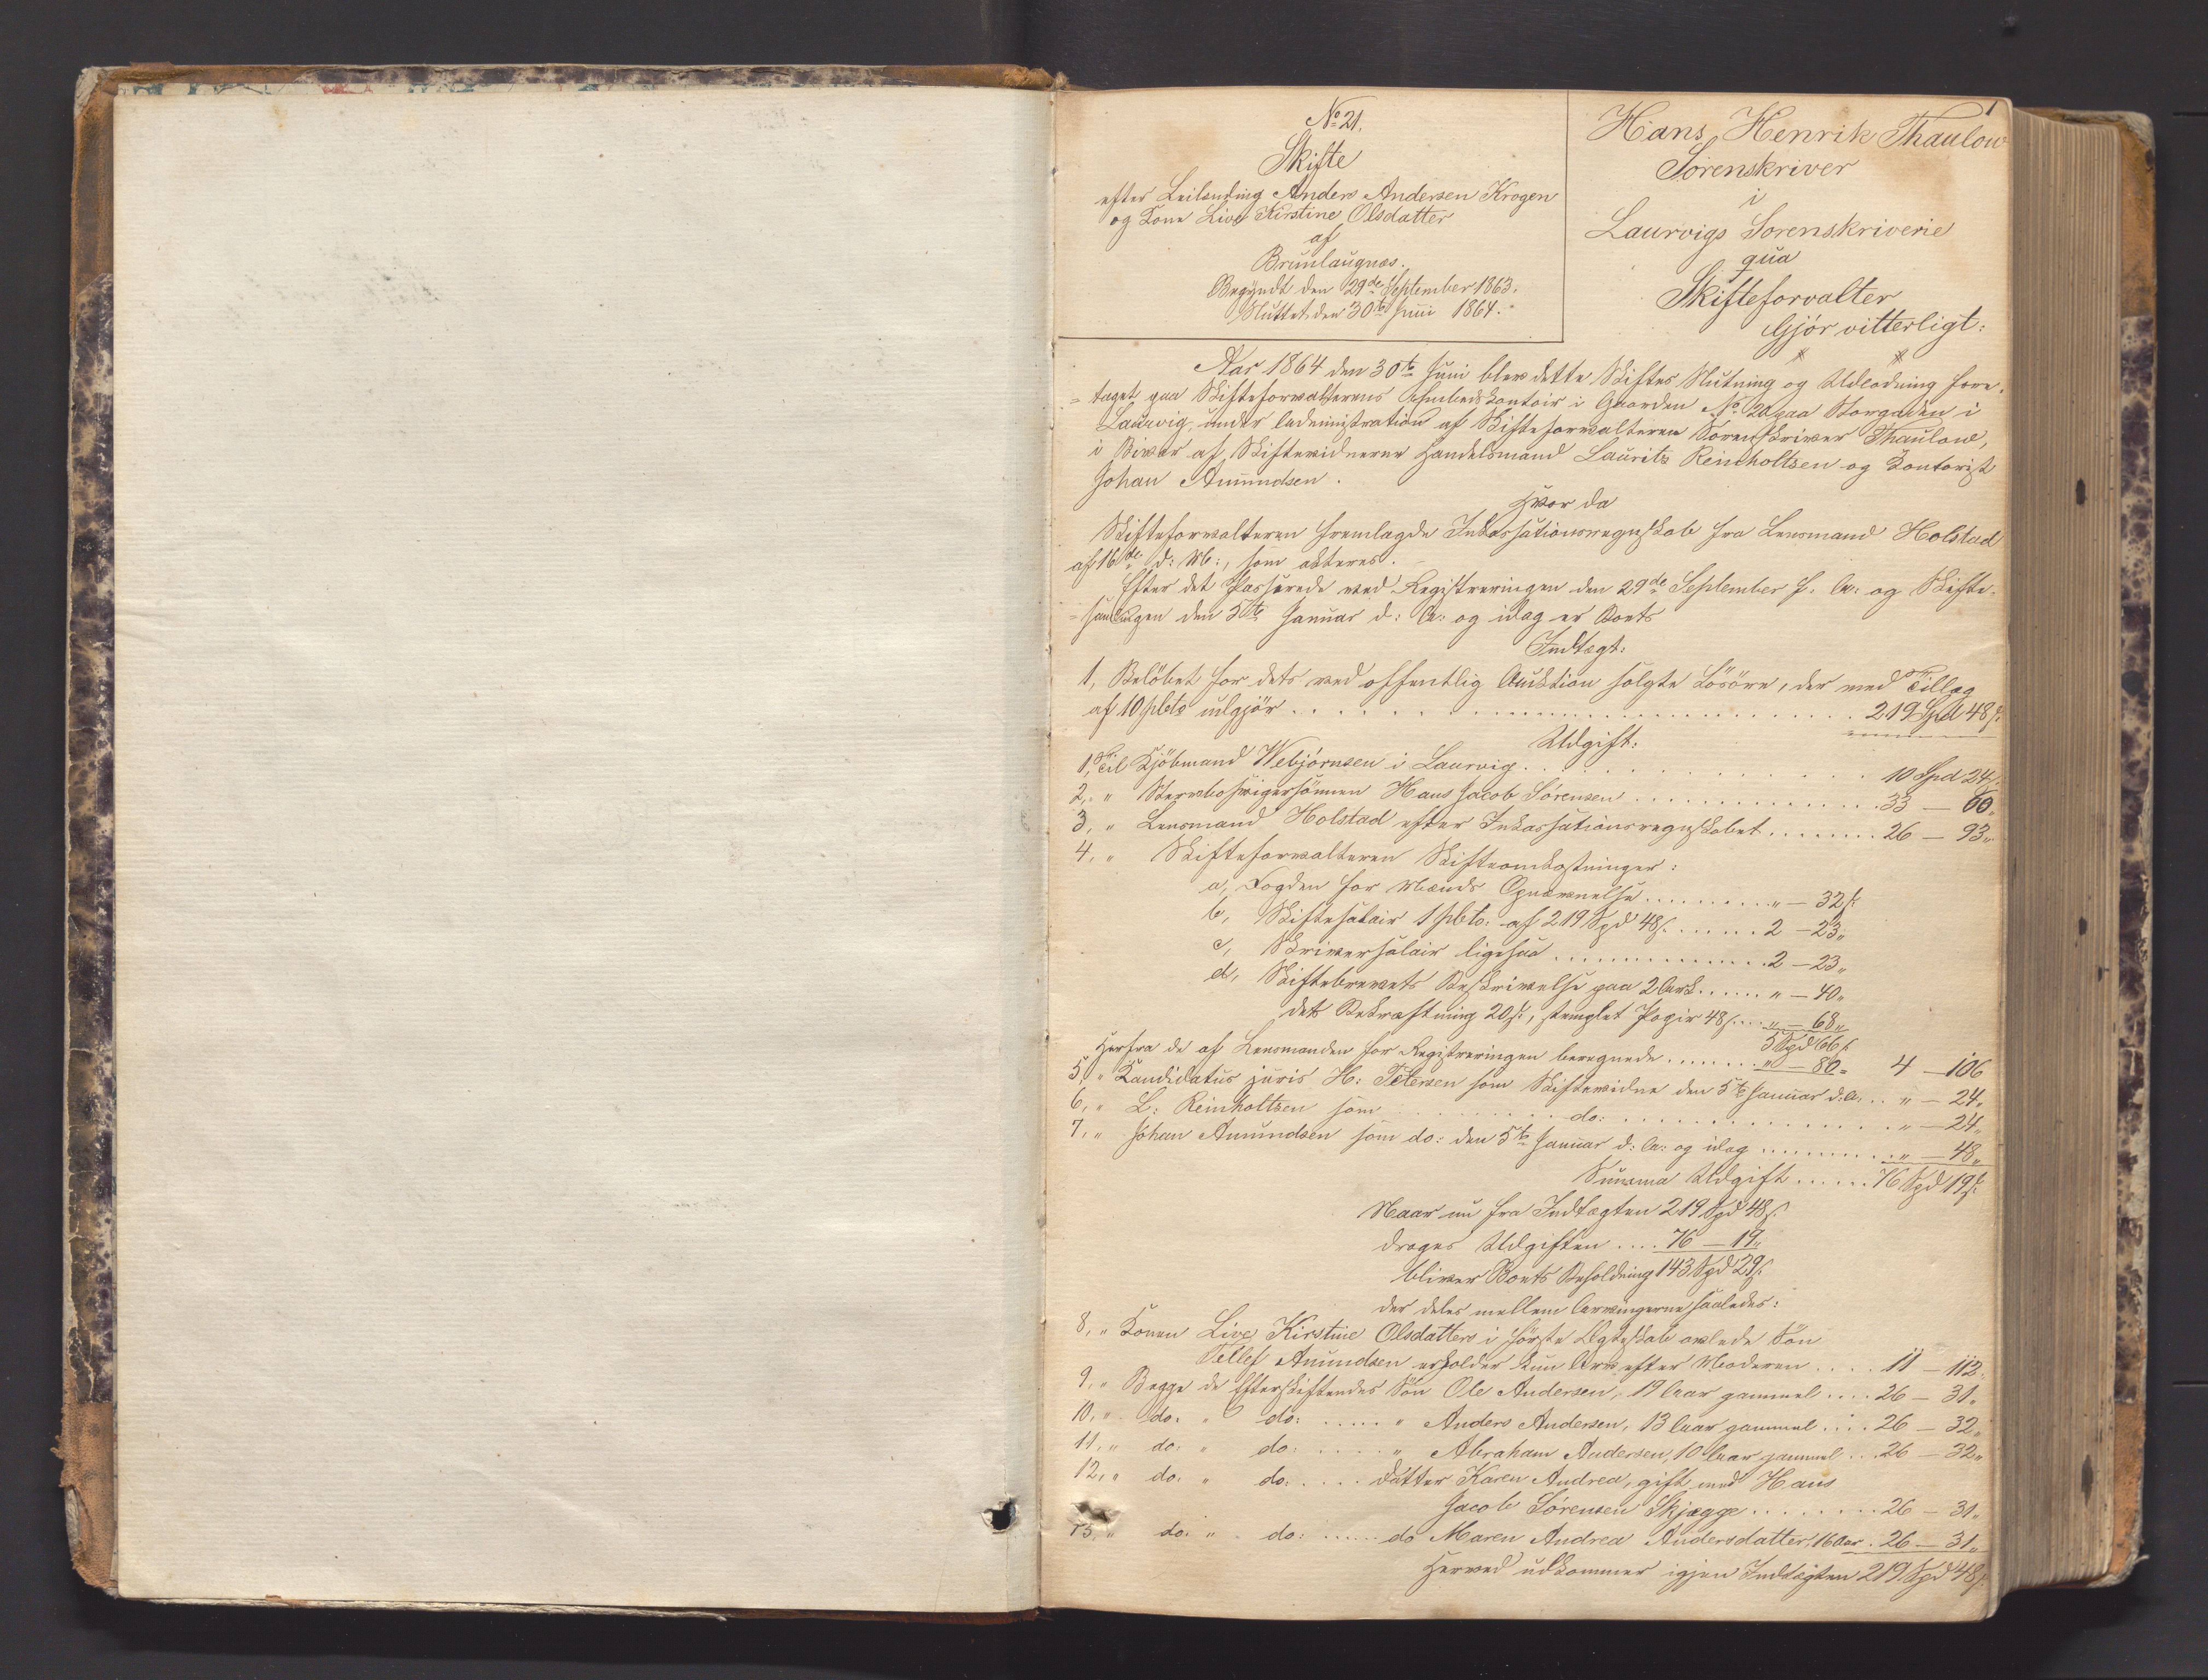 1
No 21.
Skifte
efter Leilending Anders Andersen Krogen
og Kone Live Kirstine Olsdatter
af
Brunlaugnæs.
Begyndt den 29de September 1863.
Sluttet den 30te Juni 1864.
Hans Henrik Thaulow
Sorenskriver
i
Laurvigs Sorenskriverie
qua
Skifteforvalter
Gjør vitterligt:
Aar 1864 den 30te Juni blev dette Skiftes Slutning og Udlodning fore-
=taget paa Skifteforvalterens Embedskontoir i Gaarden No 20 paa Storgaden i
Laurvig, under Administration af Skifteforvalteren Sorenskriver Thaulow,
i Bivær af Skiftevidnerne Handelsmand Laurits Reinholtsen og Kontorist
Johan Amundsen.
Hvor da
Skifteforvalteren fremlagde Inkassationsregnskab fra Lensmand Holstad
af 16de d: M:, som akteres.
Efter det Passerede ved Registreringen den 29de September f. A: og Skifte-
=samlingen den 5te Januar d: A: og idag er Boets
Indtægt:
1, Beløbet for dets ved offentlig Auktion solgte Løsøre, der med Tillæg
af 10 pCto udgjør . . . . . 219 Spd 48 s.
Udgift:
1, Til Kjøbmand Webjørnsen i Laurvig . . . . . 10 Spd 24 s.
2, " Stervbosvigersønnen Hans Jacob Sørensen . . . . . 33 — 60 "
3, " Lensmand Holstad efter Inkassationsregnskabet . . . . . 26 — 93 "
4, " Skifteforvalteren Skifteomkostninger:
a, Fogden for Mænds Opnævnelse . . . . . " — 32 s.
b, Skiftesalair 1 pCto. af 219 Spd 48 s. . . . . . 2 — 23 "
c, Skriversalair ligesaa . . . . . 2 — 23 "
d, Skiftebrevets Beskrivelse paa 2 Ark . . . . . " — 40 "
dets Bekræftning 20 s., stemplet Papir 48 s. . . . " — 68 "
5 Spd 66 s.
Herfra de af Lensmanden for Registreringen beregnede . . . . . " — 80 = 4 — 106
5, " Kandidatus juris H: Petersen som Skiftevidne den 5te Januar d: A: . . " — 24 "
6, " L: Reinholtsen som . . . . . do: . . . . . " — 24 "
7, " Johan Amundsen som do: den 5te Januar d: A: og idag . . . . . " — 48 "
Summa Udgift . . . . . 76 Spd 19 s.
Naar nu fra Indtægten 219 Spd 48 s.
drages Udgiften . . . . 76 — 19 "
bliver Boets Beholdning 143 Spd 29 s.
der deles mellem Arvingerne saaledes:
8, " Konen Live Kirstine Olsdatters i første Ægteskab avlede Søn
Tellef Amundsen erholder kun Arv efter Moderen . . . . 11 — 112 "
9, " Begge de Efterskiftendes Søn Ole Andersen, 19 Aar gammel . . . . 26 — 31 "
10, " do. " do: . . . . . " Anders Andersen, 13 Aar gammel . . . . 26 — 32 "
11, " do. " do: . . . . . " Abraham Andersen, 10 Aar gammel . . . 26 — 32 "
12, " do. " do: . . . . Datter Karen Andrea, gift med Hans
Jacob Sørensen Skjægge . . . . . 26 — 31 "
13, " do. " do: . . . . . do Maren Andrea Andersdatter, 16 Aar . 26 — 31 "
Herved udkommer igjen Indtægten 219 Spd 48 s.